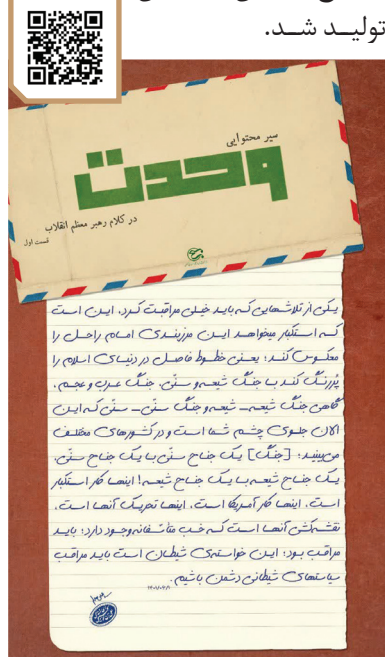 تولید شد.
سیر محتوایی
وحدت
در کلام رهبر معظم انقلاب
قسمت اول
یکی از تلاشهایی که باید خیلی مراقبت کرد، این است
که استکبار میخواهد این مرزبندی امام راحل را
معکوس کند؛ یعنی خطوط فاصل در دنیای اسلام را
پُررنگ کند با جنگ شیعه و سنّی، جنگ عرب و عجم،
گاهی جنگ شیعه - شیعه و جنگ سنّی - سنّی که این
الان جلوی چشم شما است و در کشورهای مختلف
می‌بینید؛ [جنگ] یک جناح سنّی با یک جناح سنّی،
یک جناح شیعه با یک جناح شیعه! اینها کار استکبار
است، اینها کار آمریکا است، اینها تحریک آنها است،
نقشه‌کشی آنها است که خب متأسّفانه وجود دارد؛ باید
مراقب بود؛ این خواسته‌ی شیطان است باید مراقب
سیاستهای شیطانی دشمن باشیم.